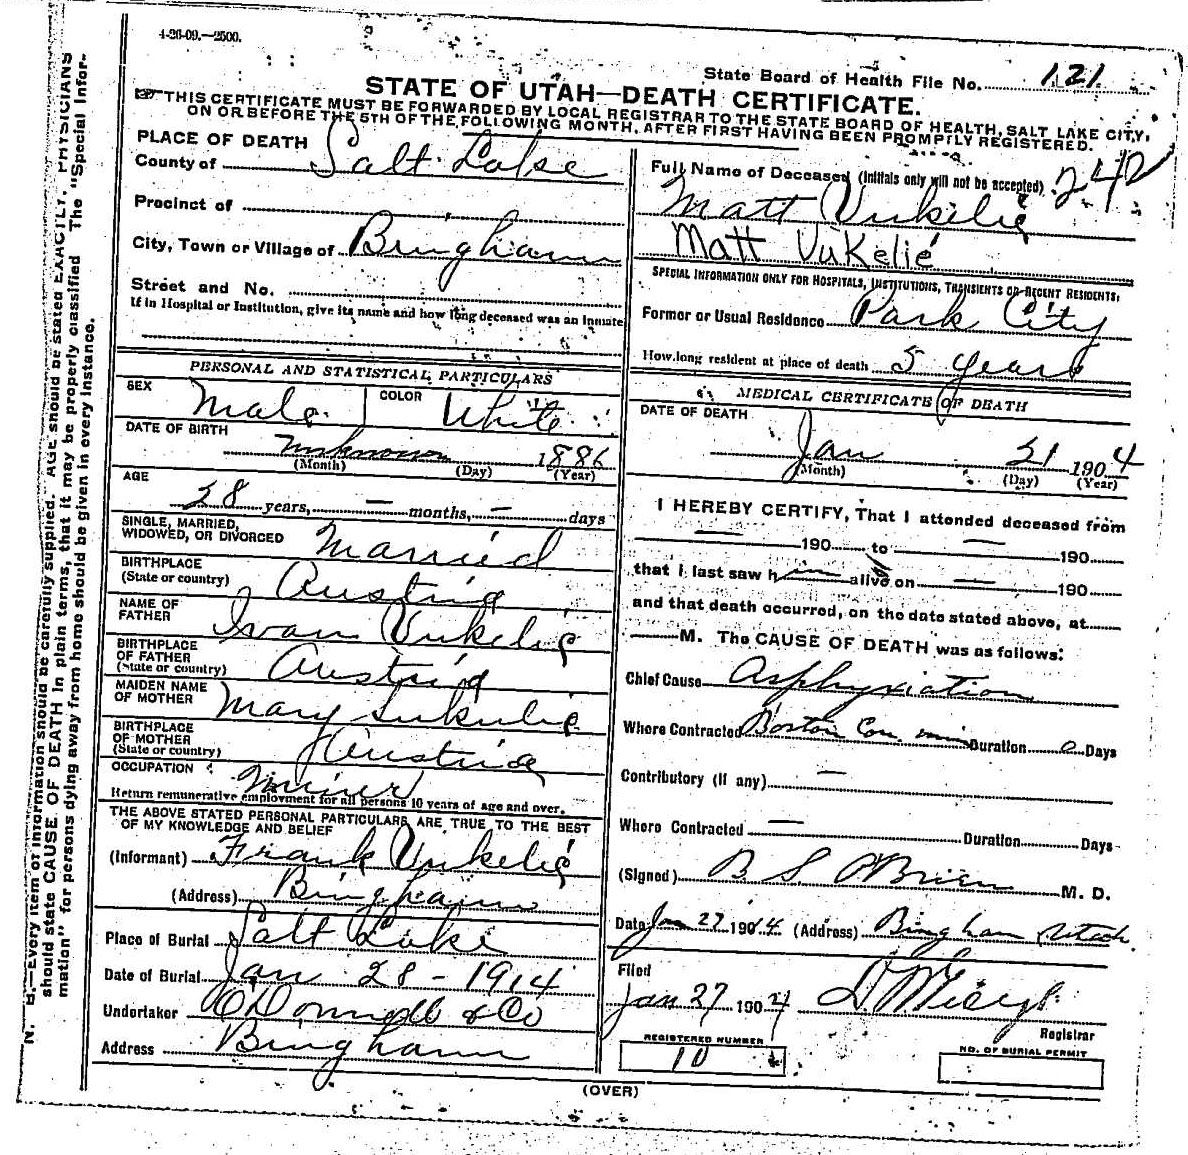 4-26-09.—2500.
State Board of Health File No. 121
STATE OF UTAH—DEATH CERTIFICATE.
THIS CERTIFICATE MUST BE FORWARDED BY LOCAL REGISTRAR TO THE STATE BOARD OF HEALTH, SALT LAKE CITY,
ON OR BEFORE THE 5TH OF THE FOLLOWING MONTH, AFTER FIRST HAVING BEEN PROMPTLY REGISTERED.
PLACE OF DEATH
County of Salt Lake
Precinct of
City, Town or Village of Bingham
Street and No.
If in Hospital or Institution, give its name and how long deceased was an inmate
Full Name of Deceased (Initials only will not be accepted) 242
Matt Vukelić
Matt Vukelié
SPECIAL INFORMATION ONLY FOR HOSPITALS, INSTITUTIONS, TRANSIENTS OR RECENT RESIDENTS:
Former or Usual Residence Park City
How long resident at place of death 5 years
PERSONAL AND STATISTICAL PARTICULARS
SEX Male COLOR White
DATE OF BIRTH unknown 1886
(Month) (Day) (Year)
AGE
28 years, — months, — days
SINGLE, MARRIED,
WIDOWED, OR DIVORCED Married
BIRTHPLACE
(State or country) Austria
NAME OF
FATHER Ivan Vukelić
BIRTHPLACE
OF FATHER
(State or country) Austria
MAIDEN NAME
OF MOTHER Mary
BIRTHPLACE
OF MOTHER
(State or country) Austria
OCCUPATION Miner
Return remunerative employment for all persons 10 years of age and over.
THE ABOVE STATED PERSONAL PARTICULARS ARE TRUE TO THE BEST
OF MY KNOWLEDGE AND BELIEF
(Informant) Frank Vukelić
(Address) Bingham
Place of Burial Salt Lake
Date of Burial Jan 28 - 1914
Undertaker O'Donnell & Co
Address Bingham
MEDICAL CERTIFICATE OF DEATH
DATE OF DEATH
Jan 21 1904
(Month) (Day) (Year)
I HEREBY CERTIFY, That I attended deceased from
— 190 to — 190
that I last saw him alive on — 190
and that death occurred, on the date stated above, at
— M. The CAUSE OF DEATH was as follows:
Chief Cause Asphyxiation
Where Contracted Boston Con. mine Duration 0 Days
Contributory (if any) —
Where Contracted — Duration Days
(Signed) B S O'Brien M. D.
Date Jan 27 1904 (Address) Bingham Utah.
Filed
Jan 27 1904
Registrar
REGISTERED NUMBER
10
NO. OF BURIAL PERMIT
(OVER)
N. B.—Every item of information should be carefully supplied. AGE should be stated EXACTLY. PHYSICIANS
should state CAUSE OF DEATH in plain terms, that it may be properly classified. The "Special Infor-
mation" for persons dying away from home should be given in every instance.